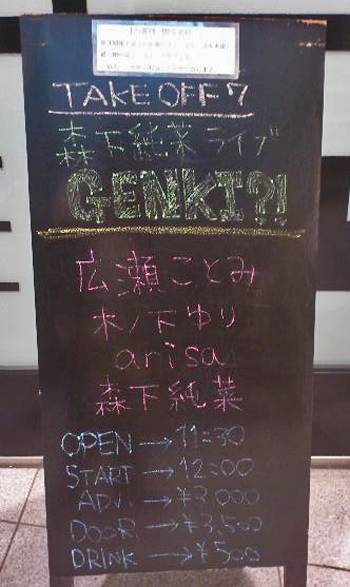 TAKE OFF 7
森下純菜ライブ
GENKI?!
広瀬ことみ
木ノ下ゆり
arisa
森下純菜
OPEN → 11:30
START → 12:00
ADV. → ¥3,000
DOOR → ¥3,500
DRINK → ¥500